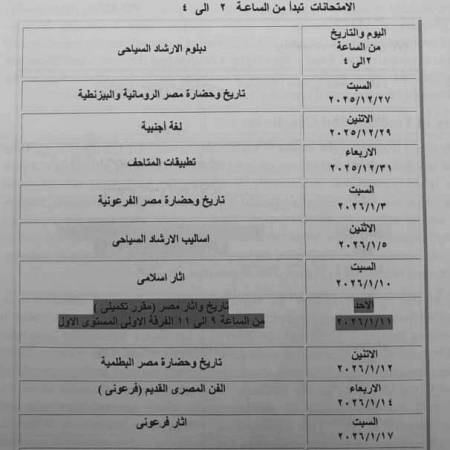 الامتحانات تبدأ من الساعة ٢ الى ٤
اليوم والتاريخ
من الساعة
٢الى ٤
دبلوم الارشاد السياحى
السبت
٢٠٢٥/١٢/٢٧
تاريخ وحضارة مصر الرومانية والبيزنطية
الاثنين
٢٠٢٥/١٢/٢٩
لغة أجنبية
الاربعاء
٢٠٢٥/١٢/٣١
تطبيقات المتاحف
السبت
٢٠٢٦/١/٣
تاريخ وحضارة مصر الفرعونية
الاثنين
٢٠٢٦/١/٥
اساليب الارشاد السياحى
السبت
٢٠٢٦/١/١٠
اثار اسلامى
الاحد
٢٠٢٦/١/١١
تاريخ واثار مصر (مقرر تكميلى )
من الساعة ٩ الى ١١ الفرقة الاولى المستوى الاول
الاثنين
٢٠٢٦/١/١٢
تاريخ وحضارة مصر البطلمية
الاربعاء
٢٠٢٦/١/١٤
الفن المصرى القديم (فرعونى )
السبت
٢٠٢٦/١/١٧
اثار فرعونى